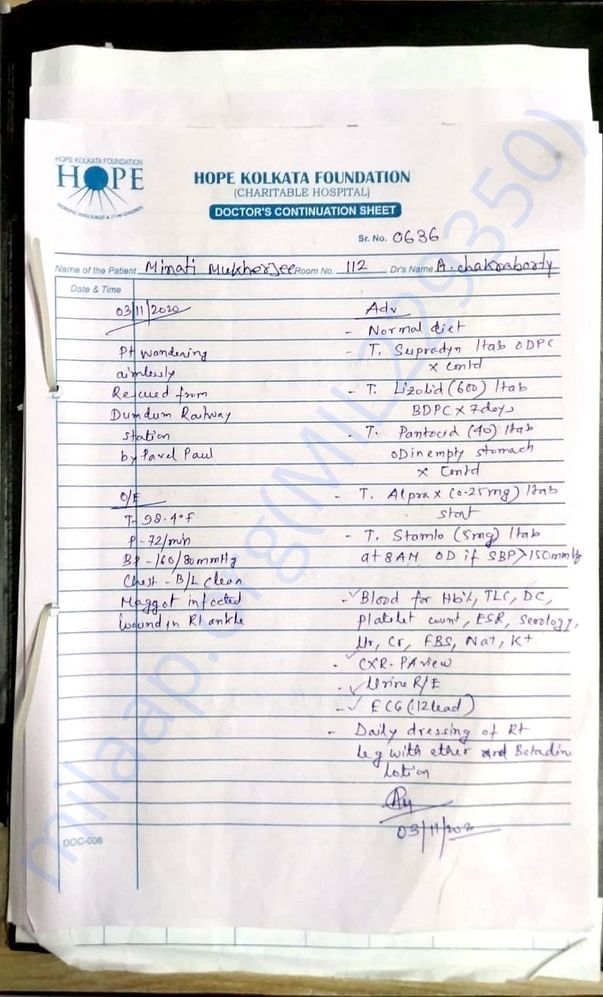 HOPE KOLKATA FOUNDATION
HOPE
HOPE KOLKATA FOUNDATION
(CHARITABLE HOSPITAL)
DOCTOR'S CONTINUATION SHEET
Sr. No. 0636
Name of the Patient Minati Mukherjee Room No. 112 Dr's Name A. Chakraborty
Date & Time
03/11/2020
Pt wandering
aimlessly
Rescued from
Dumdum Railway
station
by Pavel Paul
O/E
T- 98.4°F
P- 72/min
BP- 160/80mmHg
Chest - B/L clean
Maggot infected
wound in Rt ankle
Adv
- Normal diet
- T. Supradyn 1tab ODPC
x Contd
- T. Lizolid (600) 1tab
BDPC x 7days
- T. Pantocid (40) 1tab
OD in empty stomach
x Contd
- T. Alprax (0.25mg) 1tab
stat
- T. Stamlo (5mg) 1tab
at 8AM OD if SBP>150mmHg
- Blood for Hb%, TLC, DC,
platelet count, ESR, Serology,
Ur, Cr, FBS, Na+, K+
- CXR-PA view
- Urine R/E
- ECG (12lead)
- Daily dressing of Rt
leg with ether and Betadin
lotion
03/11/2020
DOC-006
milaap.org(MIL229350)